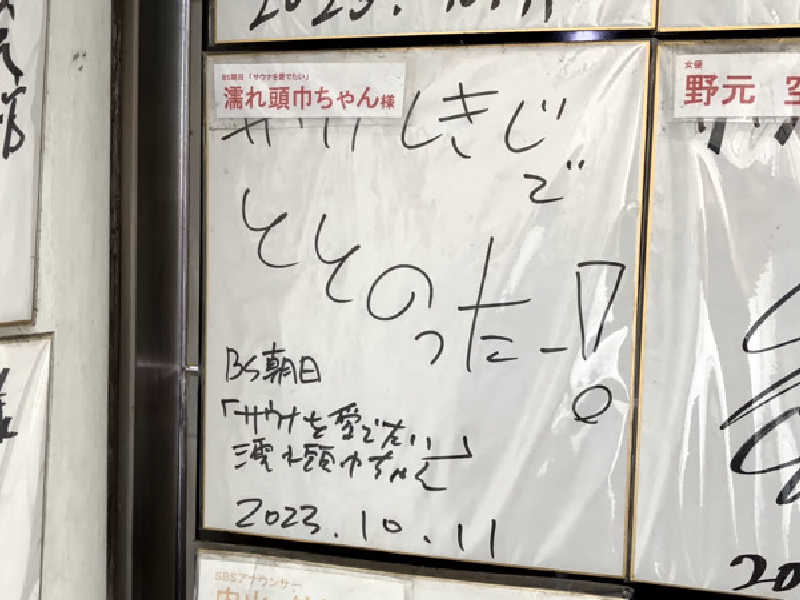 2023.10.11
BS朝日 「サウナを愛でたい」
濡れ頭巾ちゃん様
サウナしきじ
で
ととのったー!
BS朝日
「サウナを愛でたい」
濡れ頭巾ちゃん
2023.10.11
女優
野元 空
20
SBSアナウンサー